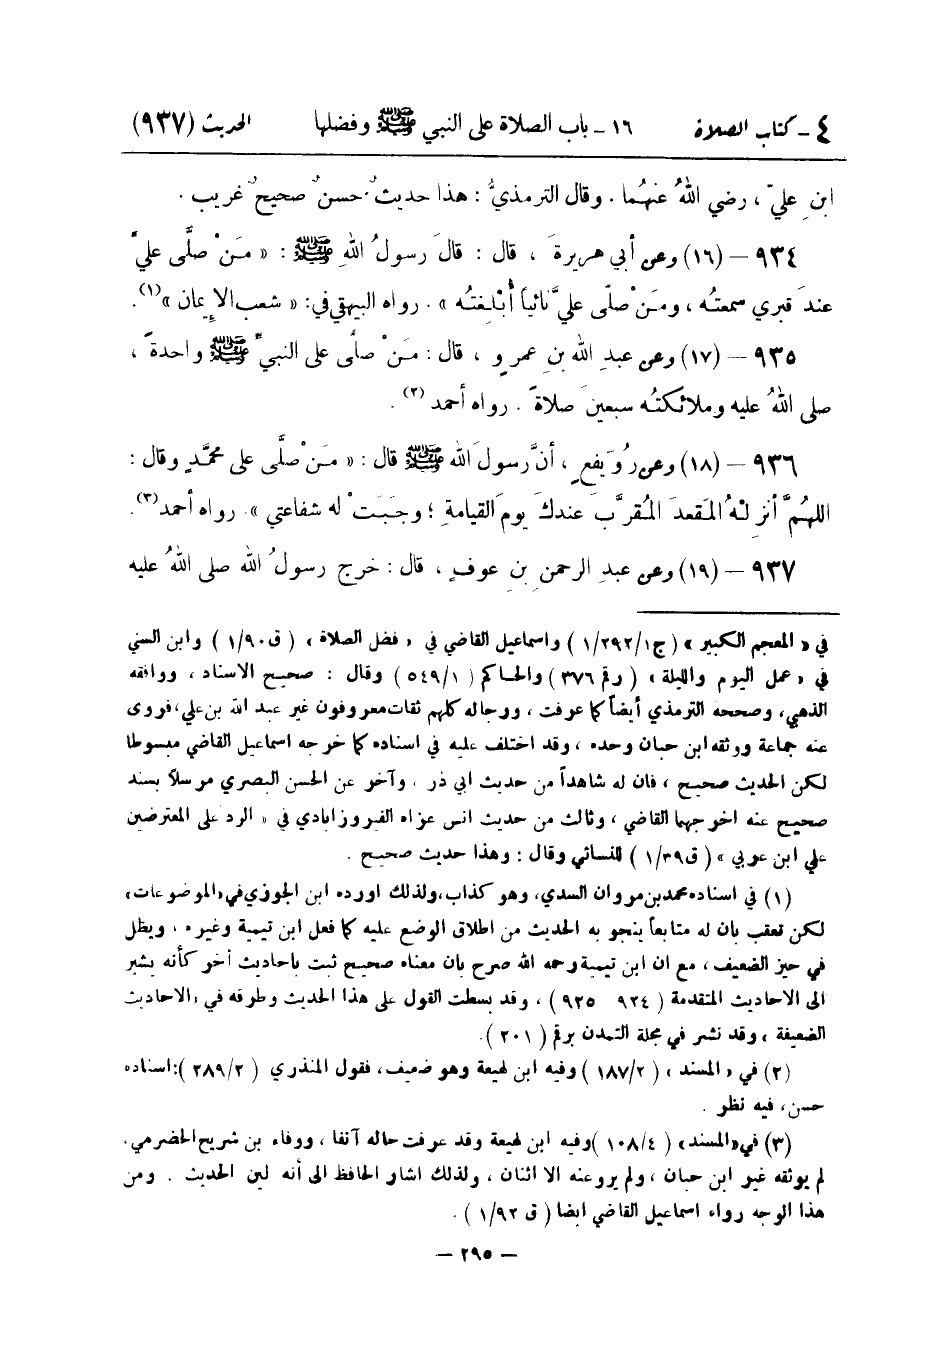 ٤ - كتاب الصلاة ١٦ - باب الصلاة على النبي ﷺ وفضلها الحديث (٩٣٧)
ابنِ عليّ ، رضي اللهُ عنهُما . وقال الترمذيُّ : هذا حديثٌ حسنٌ صحيحٌ غريب .
٩٣٤ – (١٦) وعن أبي هريرةَ ، قال : قالَ رسولُ اللهِ ﷺ : « مَنْ صلَّى عليَّ
عندَ قبري سمعتُه ، ومَنْ صلّى عليَّ نائياً أُبْلِغتُه » . رواه البيهقي في : « شعب الإيمان » (١).
٩٣٥ – (١٧) وعن عبدِ الله بنِ عمرٍو ، قال : مَنْ صلَّى على النبيِّ ﷺ واحدةً ،
صلى اللهُ عليه وملائكتُه سبعينَ صلاةً . رواه أحمد (٢) .
٩٣٦ – (١٨) وعن رُوَيفعٍ ، أنَّ رسولَ الله ﷺ قال : « مَنْ صلَّى على محمَّدٍ وقال :
اللهُمَّ أنزِلْهُ المَقعدَ المُقرَّبَ عندكَ يومَ القيامةِ ؛ وجَبَتْ له شفاعتي » . رواه أحمد (٣).
٩٣٧ – (١٩) وعن عبدِ الرحمن بنِ عوفٍ ، قال : خرج رسولُ الله صلى اللهُ عليه
في « المعجم الكبير » ( ج١/٢٩٢/١ ) واسماعيل القاضي في « فضل الصلاة » ( ق٩٠/١ ) وابن السني
في « عمل اليوم والليلة » ( رقم ٣٧٦ ) والحاكم ( ٥٤٩/١ ) وقال : صحيح الاسناد ، ووافقه
الذهبي، وصححه الترمذي أيضاً كما عرفت ، ورجاله كلهم ثقات معروفون غير عبد الله بن علي، فروى
عنه جماعة ووثقه ابن حبان وحده ، وقد اختلف عليه في اسناده كما خرجه اسماعيل القاضي مبسوطا
لكن الحديث صحيح ، فان له شاهداً من حديث ابي ذر ، وآخر عن الحسن البصري مرسلاً بسند
صحيح عنه اخرجهما القاضي ، وثالث من حديث انس عزاه الفيروزابادي في « الرد على المعترضين
على ابن عربي » ( ق٣٩/١ ) للنسائي وقال : وهذا حديث صحيح .
(١) في اسناده محمد بن مروان السدي، وهو كذاب، ولذلك اورده ابن الجوزي في « الموضوعات »
لكن تعقب بان له متابعاً ينجو به الحديث من اطلاق الوضع عليه كما فعل ابن تيمية وغيره ، ويظل
في حيز الضعيف ، مع ان ابن تيمية رحمه الله صرح بان معناه صحيح ثبت باحاديث أخر كأنه يشير
الى الاحاديث المتقدمة ( ٩٢٤ ٩٢٥ ) ، وقد بسطت القول على هذا الحديث وطرقه في « الاحاديث
الضعيفة » وقد نشر في مجلة التمدن برقم ( ٢٠١ ).
(٢) في « المسند » ( ١٨٧/٢ ) وفيه ابن لهيعة وهو ضعيف، فقول المنذري ( ٢٨٩/٢ ): اسناده
حسن، فيه نظر .
(٣) في « المسند » ( ١٠٨/٤ ) وفيه ابن لهيعة وقد عرفت حاله آنفا ، ووفاء بن شريح الحضرمي،
لم يوثقه غير ابن حبان ، ولم يرو عنه الا اثنان ، ولذلك اشار الحافظ الى أنه لين الحديث . ومن
هذا الوجه رواه اسماعيل القاضي ايضا ( ق ٩٢/١ ) .
– ٢٩٥ –